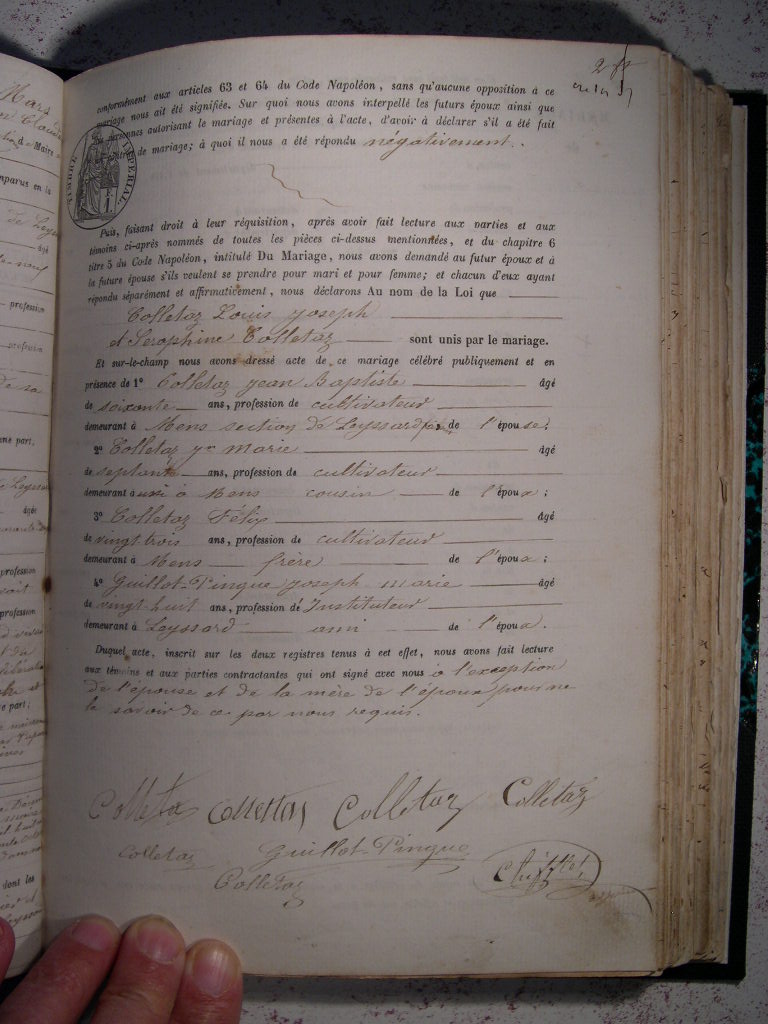 conformément aux articles 63 et 64 du Code Napoléon, sans qu'aucune opposition à ce
mariage nous ait été signifiée. Sur quoi nous avons interpellé les futurs époux ainsi que
personnes autorisant le mariage et présentes à l'acte, d'avoir à déclarer s'il a été fait
de mariage; à quoi il nous a été répondu négativement.
TIMBRE IMPERIAL
Puis, faisant droit à leur réquisition, après avoir fait lecture aux parties et aux
témoins ci-après nommés de toutes les pièces ci-dessus mentionnées, et du chapitre 6
titre 5 du Code Napoléon, intitulé Du Mariage, nous avons demandé au futur époux et à
la future épouse s'ils veulent se prendre pour mari et pour femme; et chacun d'eux ayant
répondu séparément et affirmativement, nous déclarons Au nom de la Loi que
Colletaz Louis Joseph
et Séraphine Colletaz sont unis par le mariage.
Et sur-le-champ nous avons dressé acte de ce mariage célébré publiquement et en
présence de 1° Colletaz Jean Baptiste âgé
de soixante ans, profession de cultivateur
demeurant à Mens section de Leyssard de l'épouse;
2° Colletaz marie âgé
de septante ans, profession de cultivateur
demeurant à Mens cousin de l'époux;
3° Colletaz Félix âgé
de vingt trois ans, profession de cultivateur
demeurant à Mens frère de l'époux;
4° Guillot-Pingue Joseph marie âgé
de vingt huit ans, profession de Instituteur
demeurant à Leyssard ami de l'époux.
Duquel acte, inscrit sur les deux registres tenus à cet effet, nous avons fait lecture
aux témoins et aux parties contractantes qui ont signé avec nous à l'exception
de l'épouse et de la mère de l'époux pour ne
le savoir de ce par nous requis.
Colletaz Colletaz Colletaz Colletaz
Colletaz Guillot-Pingue
Colletaz